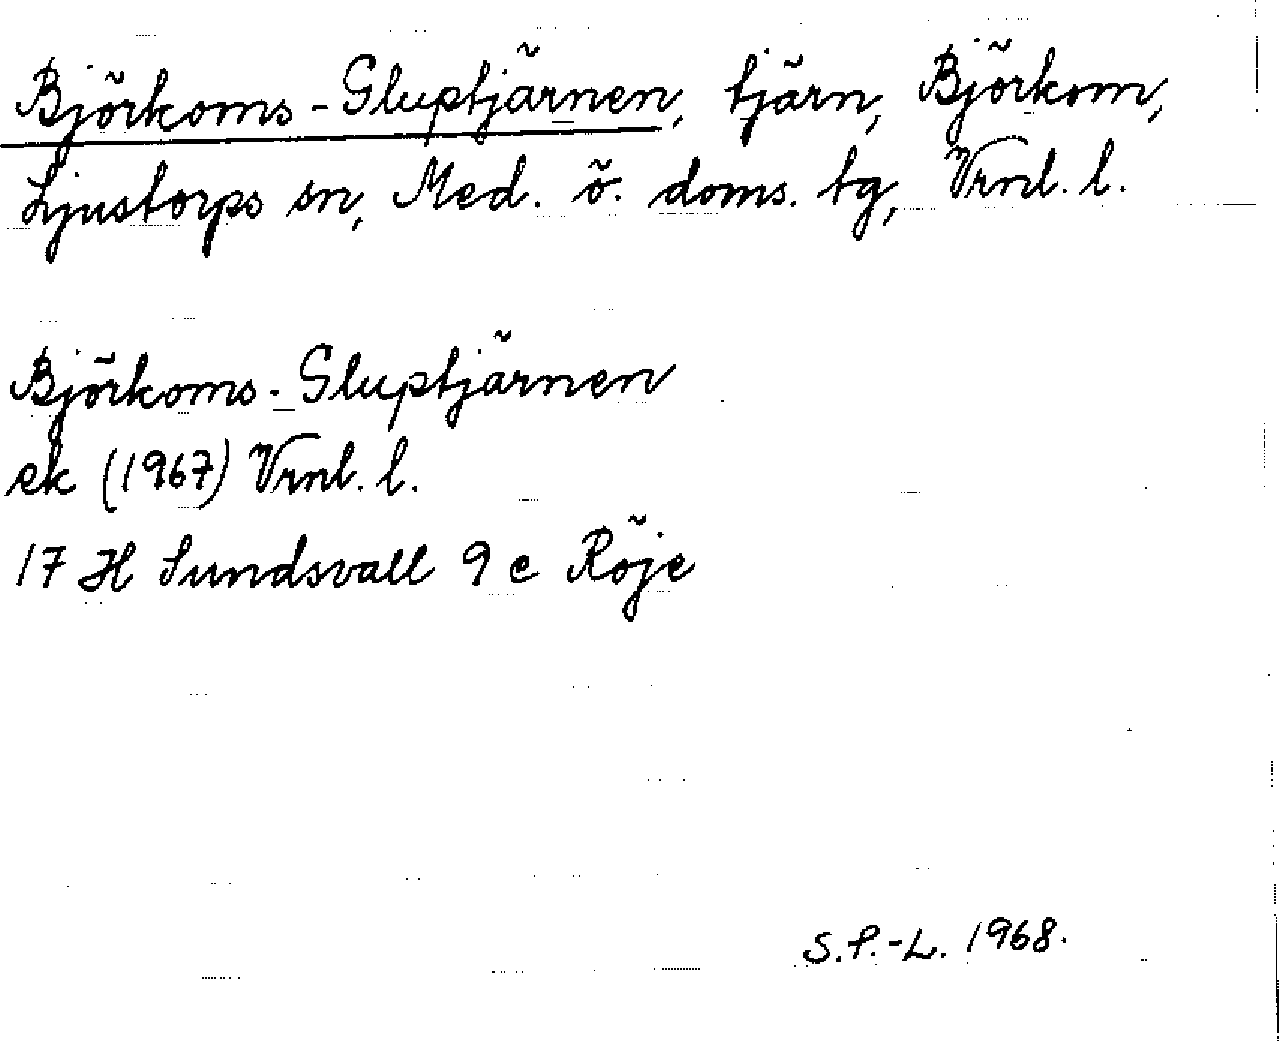 Björkoms-Gluptjärnen, tjärn, Björkom,
Ljustorps sn, Med. ö. doms. tg, Vrnl. l.
Björkoms-Gluptjärnen
ek (1967) Vrnl. l.
17 H Sundsvall 9 e Röje
S.P.-L. 1968.